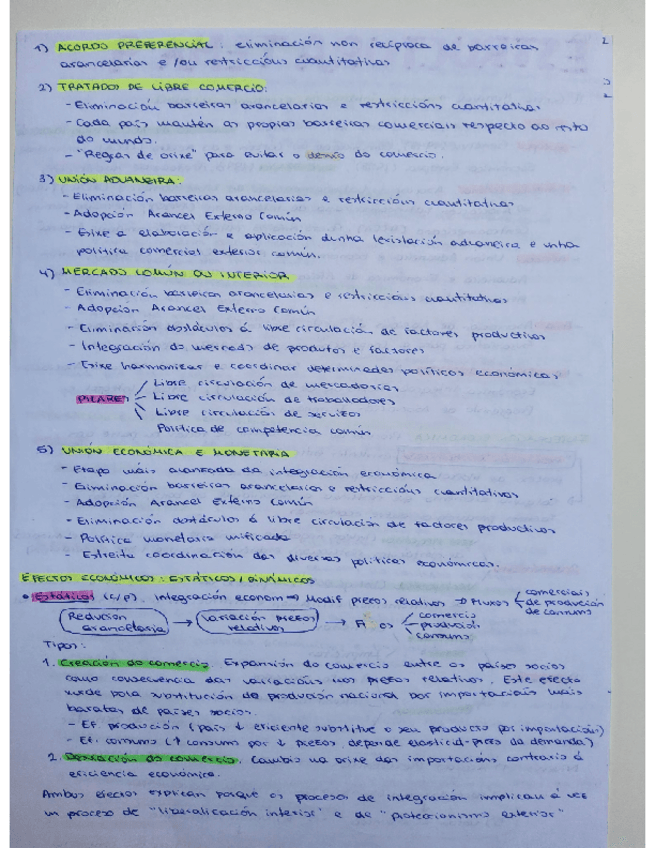 1) ACORDO PREFERENCIAL: eliminación non recíproca de barreiras
arancelarias e/ou restriccións cuantitativas
2) TRATADOS DE LIBRE COMERCIO:
- Eliminación barreiras arancelarias e restriccións cuantitativas
- Cada país mantén as propias barreiras comerciais respecto ao resto
do mundo.
- "Regras de orixe" para evitar o desvío do comercio.
3) UNIÓN ADUANEIRA:
- Eliminación barreiras arancelarias e restriccións cuantitativas
- Adopción Arancel Externo Común
- Esixe a elaboración e aplicación dunha lexislación aduaneira e unha
política comercial exterior común.
4) MERCADO COMÚN OU INTERIOR
- Eliminación barreiras arancelarias e restriccións cuantitativas
- Adopción Arancel Externo Común
- Eliminación obstáculos á libre circulación de factores productivos
- Integración do mercado de produtos e factores
- Esixe harmonizar e coordinar determinadas políticas económicas
Libre circulación de mercadorías
PILARES Libre circulación de traballadores
Libre circulación de servizos
Política de competencia común
5) UNIÓN ECONÓMICA E MONETARIA
- Etapa máis avanzada da integración económica
- Eliminación barreiras arancelarias e restriccións cuantitativas
- Adopción Arancel Externo Común
- Eliminación obstáculos á libre circulación de factores productivos
- Política monetaria unificada
- Estreita coordinación das diversas políticas económicas.
EFECTOS ECONÓMICOS: ESTÁTICOS / DINÁMICOS
• Estáticos (c/p). Integración econom ⇒ Modif prezos relativos → Fluxos comerciais
de produción
de consumo
Reducción arancelaria → Variación prezos relativos → Δ os comercio
produción
consumo
Tipos:
1. Creación do comercio. Expansión do comercio entre os países socios
como consecuencia das variacións nos prezos relativos. Este efecto
xurde pola sustitución da produción nacional por importacións máis
baratas de países socios.
- Ef. produción (país ↓ eficiente substitúe o seu producto por importación)
- Ef. consumo (↑ consumo por ↓ prezos, depende elasticid-prezo da demanda)
2. Desviación do comercio. Cambio na orixe das importacións contrario á
eficiencia económica.
Ambos efectos explican porque os procesos de integración implican á vez
un proceso de "liberalización interior" e de "proteccionismo exterior"